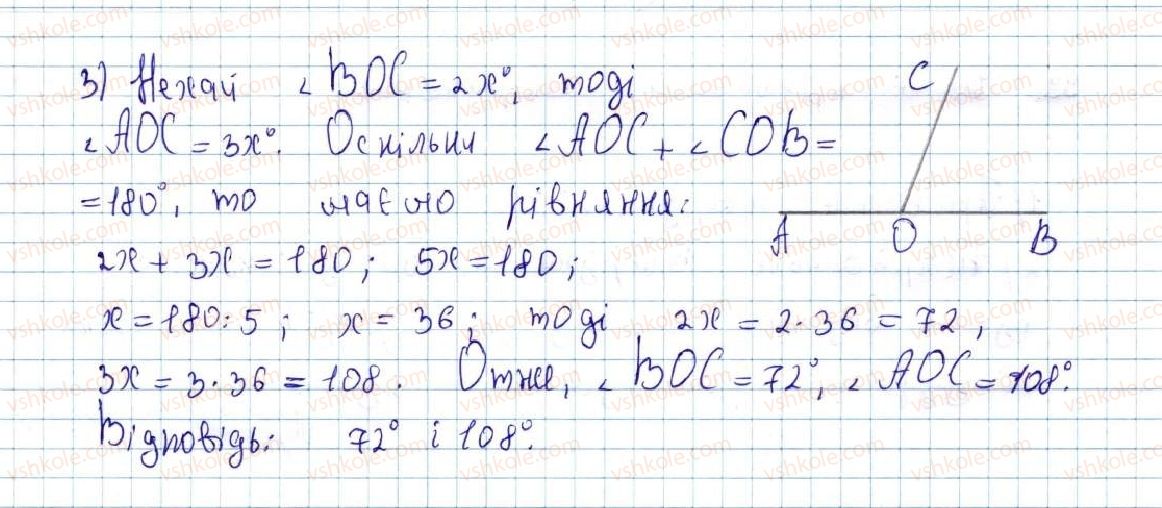 3) Нехай ∠BOC = 2x°, тоді
∠AOC = 3x°. Оскільки ∠AOC + ∠COB =
= 180°, то маємо рівняння:
2x + 3x = 180; 5x = 180;
x = 180 : 5; x = 36; тоді 2x = 2 · 36 = 72,
3x = 3 · 36 = 108. Отже, ∠BOC = 72°, ∠AOC = 108°.
Відповідь: 72° і 108°.
C
A O B
vshkole.com